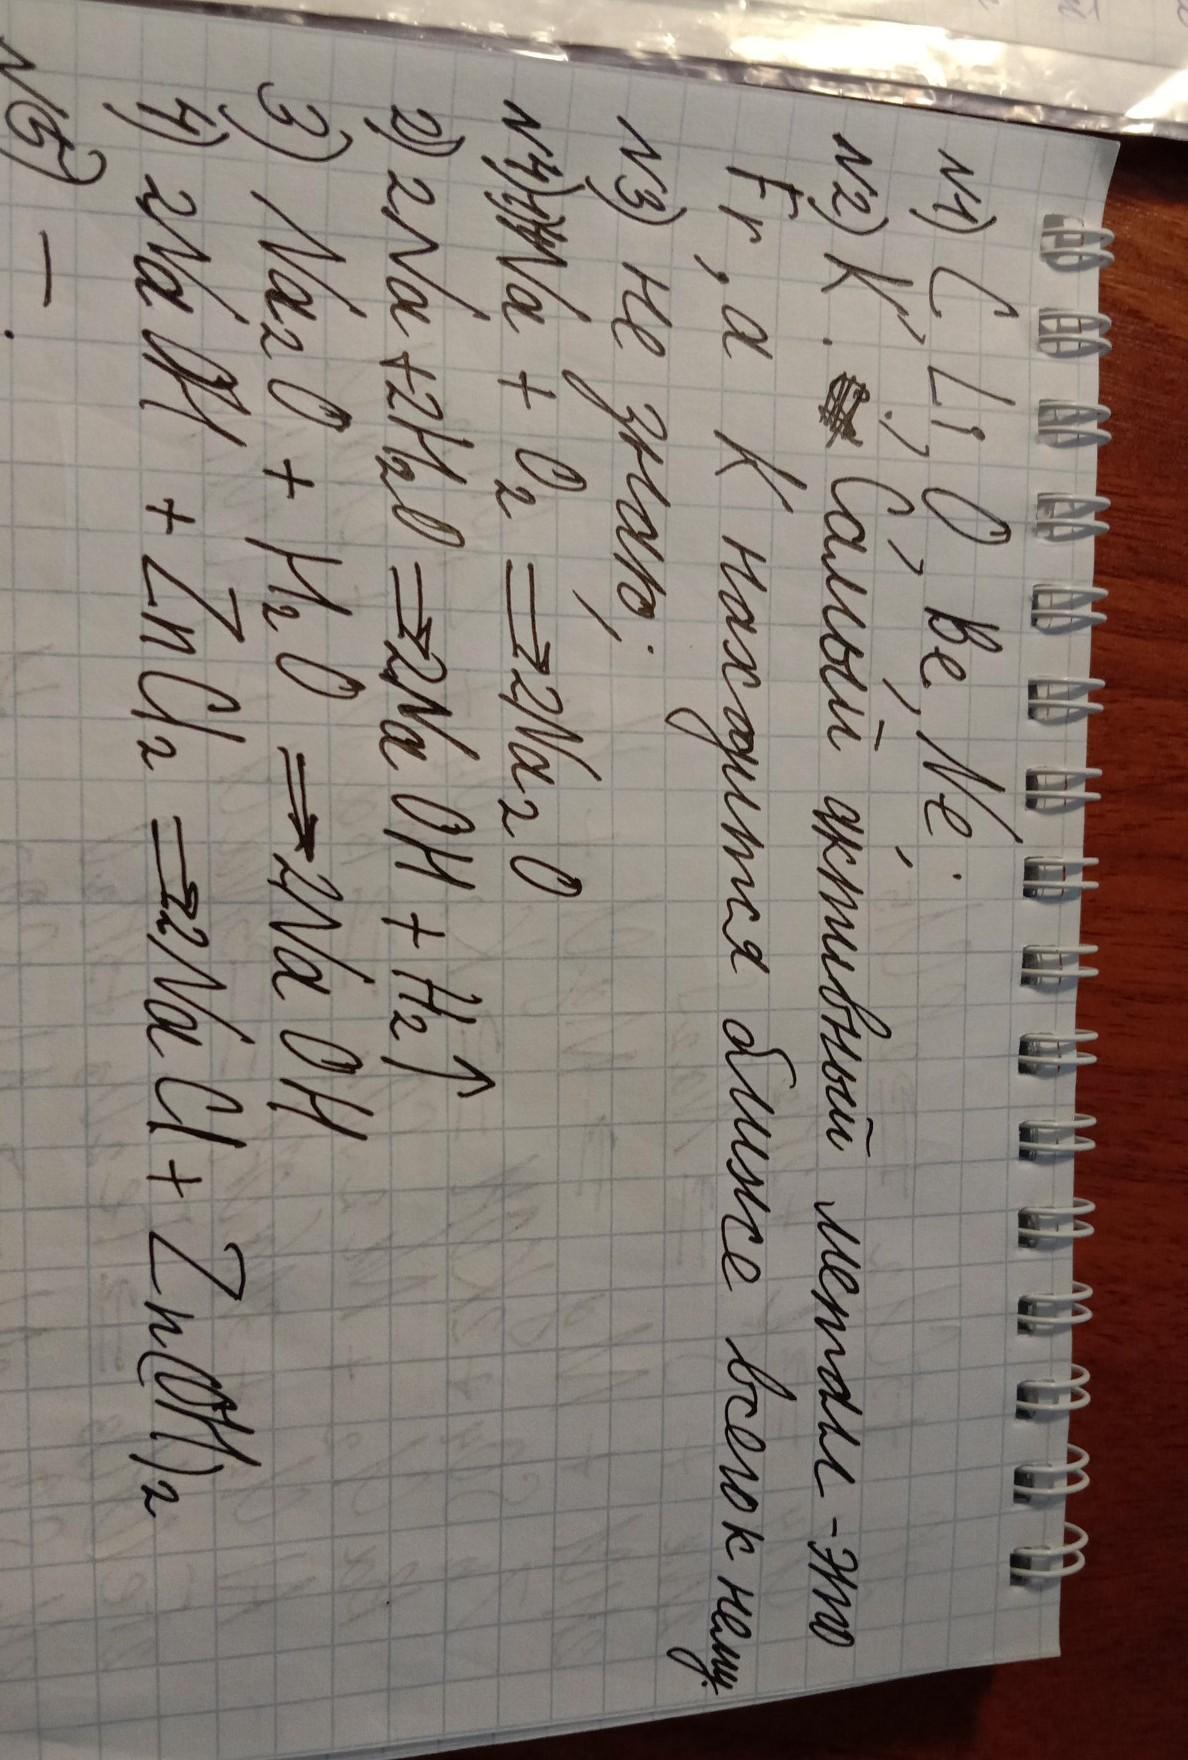 №1) C, Li, O, Be, Ne;
№2) K. Самый активный металл - это
Fr, а K находится ближе всего к нему.
№3) не знаю;
№4) 1) 4Na + O₂ => 2Na₂O
2) 2Na + 2H₂O => 2NaOH + H₂↑
3) Na₂O + H₂O => 2NaOH
4) 2NaOH + ZnCl₂ => 2NaCl + Zn(OH)₂
№5) —